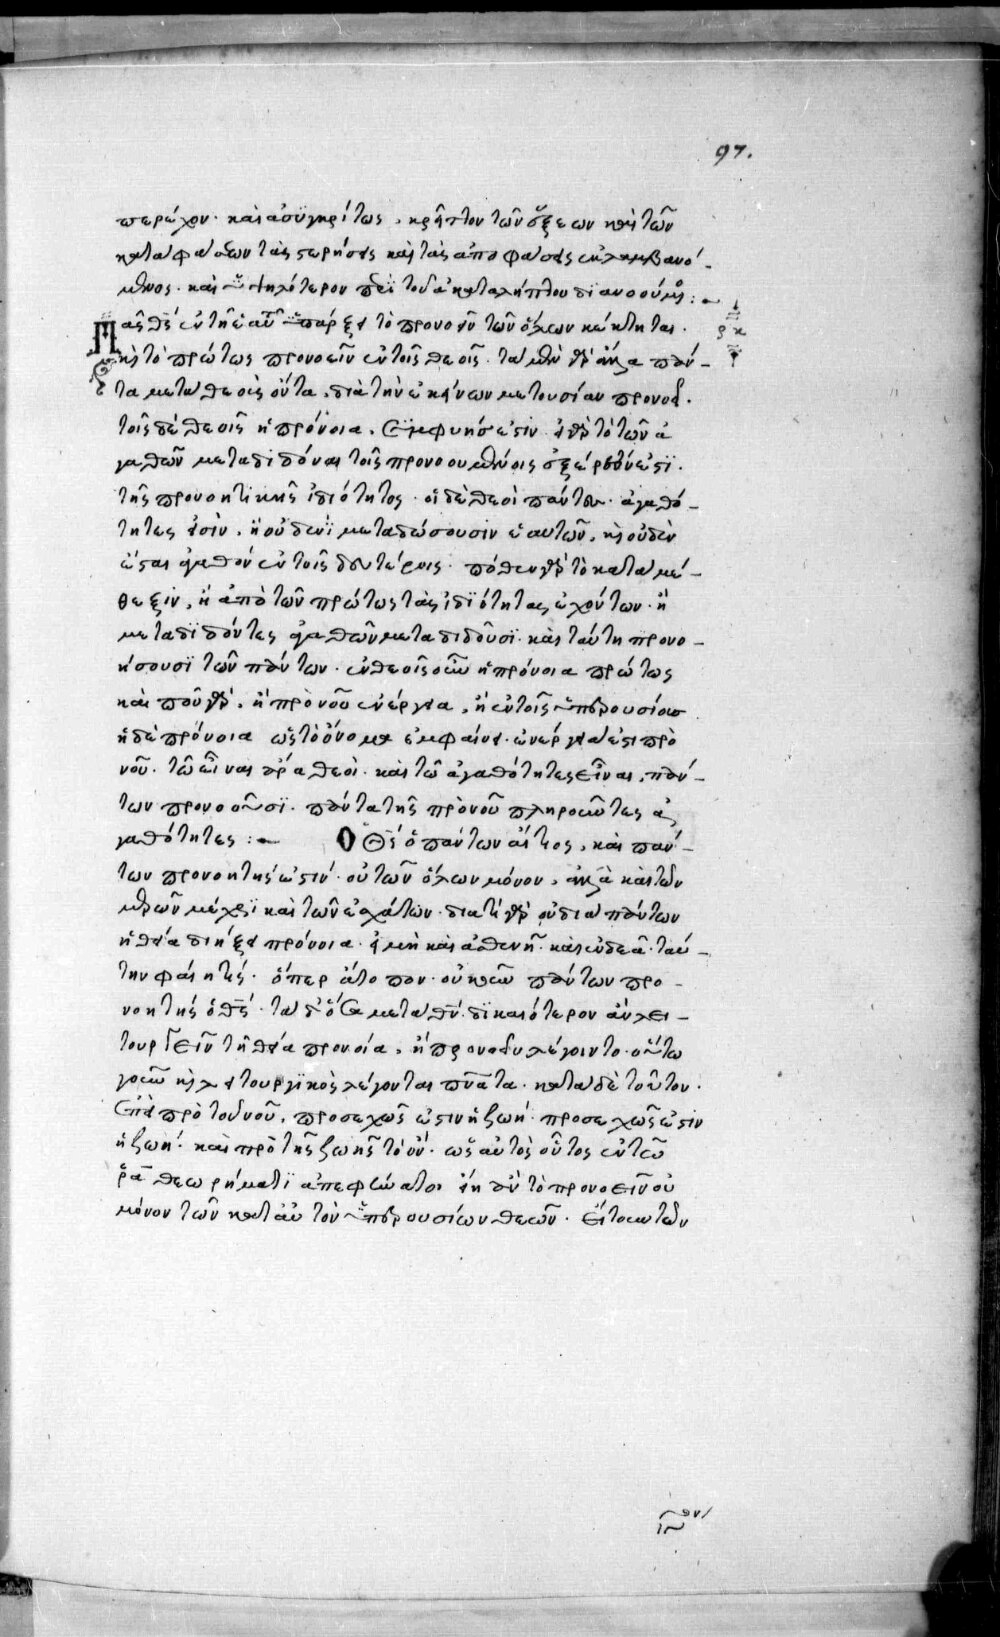 97.
περέχον. καὶ ἀσύγκρίτως, κρεῖττον τῶν ἕξεων καὶ τῶν
καταφάσεων τὰς στερήσεις καὶ τὰς ἀποφάσεις ἐκλαμβανό-
μενος. καὶ ὑψηλότερον περὶ τοῦ ἀκαταλήπτου διανοούμενος:
Πᾶς θεὸς ἐν τῇ ἑαυτοῦ ὑπάρξει τὸ προνοεῖν τῶν ὅλων κέκτηται.
ρκ
καὶ τὸ πρώτως προνοεῖν ἐν τοῖς θεοῖς. τὰ μὲν γὰρ ἄλλα πάν-
τα μετὰ θεοὺς ὄντα, διὰ τὴν ἐκείνων μετουσίαν προνοεῖ.
τοῖς δὲ θεοῖς ἡ πρόνοια, συμφυής ἐστιν. εἰ γὰρ τὸ τῶν ἀ
γαθῶν μεταδιδόναι τοῖς προνοουμένοις ἐξαίρετόν ἐστι.
τῆς προνοητικῆς ἰδιότητος. οἱ δὲ θεοὶ πάντες ἀγαθό-
τητες εἰσὶν, ἢ οὐδενὶ μεταδώσουσιν ἑαυτῶν, καὶ οὐδὲν
ἔσται ἀγαθόν ἐν τοῖς δευτέροις. πόθεν γὰρ τὸ κατὰ μέ-
θεξιν, ἢ ἀπὸ τῶν πρώτως τὰς ἰδιότητας ἐχόντων. ἢ
μεταδιδόντες ἀγαθῶν μεταδιδοῦσι. καὶ ταύτῃ προνο-
ήσουσι τῶν πάντων. ἐν θεοῖς οὖν ἡ πρόνοια πρώτως
καὶ ποῦ γὰρ, ἡ πρὸ νοῦ ἐνέργεια, ἢ ἐν τοῖς ὑπερουσίοις
ἡ δὲ πρόνοια ὡς τὸ ὄνομα ἐμφαίνει. ἐνέργειά ἐστι πρὸ
νοῦ. τῷ εἶναι ἄρα θεοὶ. καὶ τῷ ἀγαθότητες εἶναι, πάν-
των προνοοῦσι. πάντα τῆς πρὸ νοῦ πληροῦντες ἀ
γαθότητες: Ὁ Θεὸς ὁ πάντων αἴτιος, καὶ πάν-
των προνοητής ἐστιν. οὐ τῶν ὅλων μόνον, ἀλλὰ καὶ τῶν
μερῶν μέχρι καὶ τῶν ἐσχάτων. διατί γὰρ οὐ διὰ πάντων
ἡ θεία διήξει πρόνοια. εἰ μὴ καὶ ἀσθενῆ. καὶ ἐνδεᾶ. ταύ-
την φαίη τίς. ὅπερ ἄτοπον. οὐκοῦν πάντων προ-
νοητής ὁ θεός. τὰ δ' ὅσα μετὰ θεὸν. δικαιότερον ἂν λει-
τουργεῖν τῇ θεία προνοία, ἢ προνοεῖν λέγοιντο. οὕτω
γοῦν καὶ λειτουργικὸς λέγονται πνεύματα. κατὰ δὲ τοῦτον.
ἐπεὶ πρὸ τοῦ νοῦ, προσεχῶς ἐστιν ἡ ζωή. προσεχῶς ἐστιν
ἡ ζωή. καὶ πρὸ τῆς ζωῆς τὸ ὄν. ὡς αὐτὸς οὗτος ἐν τῷ
θεωρήματι ἀπεφήνατο. εἴη ἂν τὸ προνοεῖν οὐ
μόνον τῶν κατ' αὐτὸν ὑπερουσίων θεῶν. εἴτουν τῶν